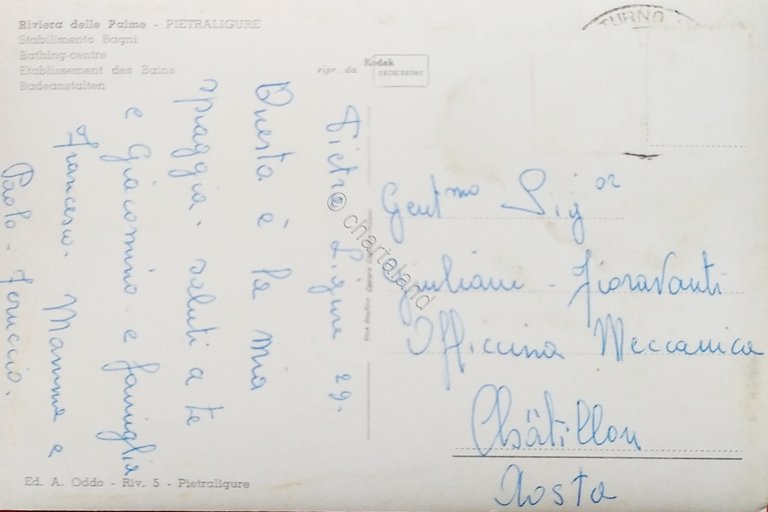 Riviera delle Palme - PIETRALIGURE
Stabilimento Bagni
Bathing-centre
Etablissement des Bains
Badeanstalten
ripr. da Kodak
EKTACHROME
TURNO
Pietra Ligure 29.
Questa è la mia
spiaggia. saluti a te
e Giacomino e famiglia
Francesco. Mamma e
Paolo - Ferruccio.
Gent.mo Sig.or
Giuliano - Fioravanti
Officina Meccanica
Châtillon
Aosta
© chartaland
Ed. A. Oddo - Riv. 5 - Pietraligure